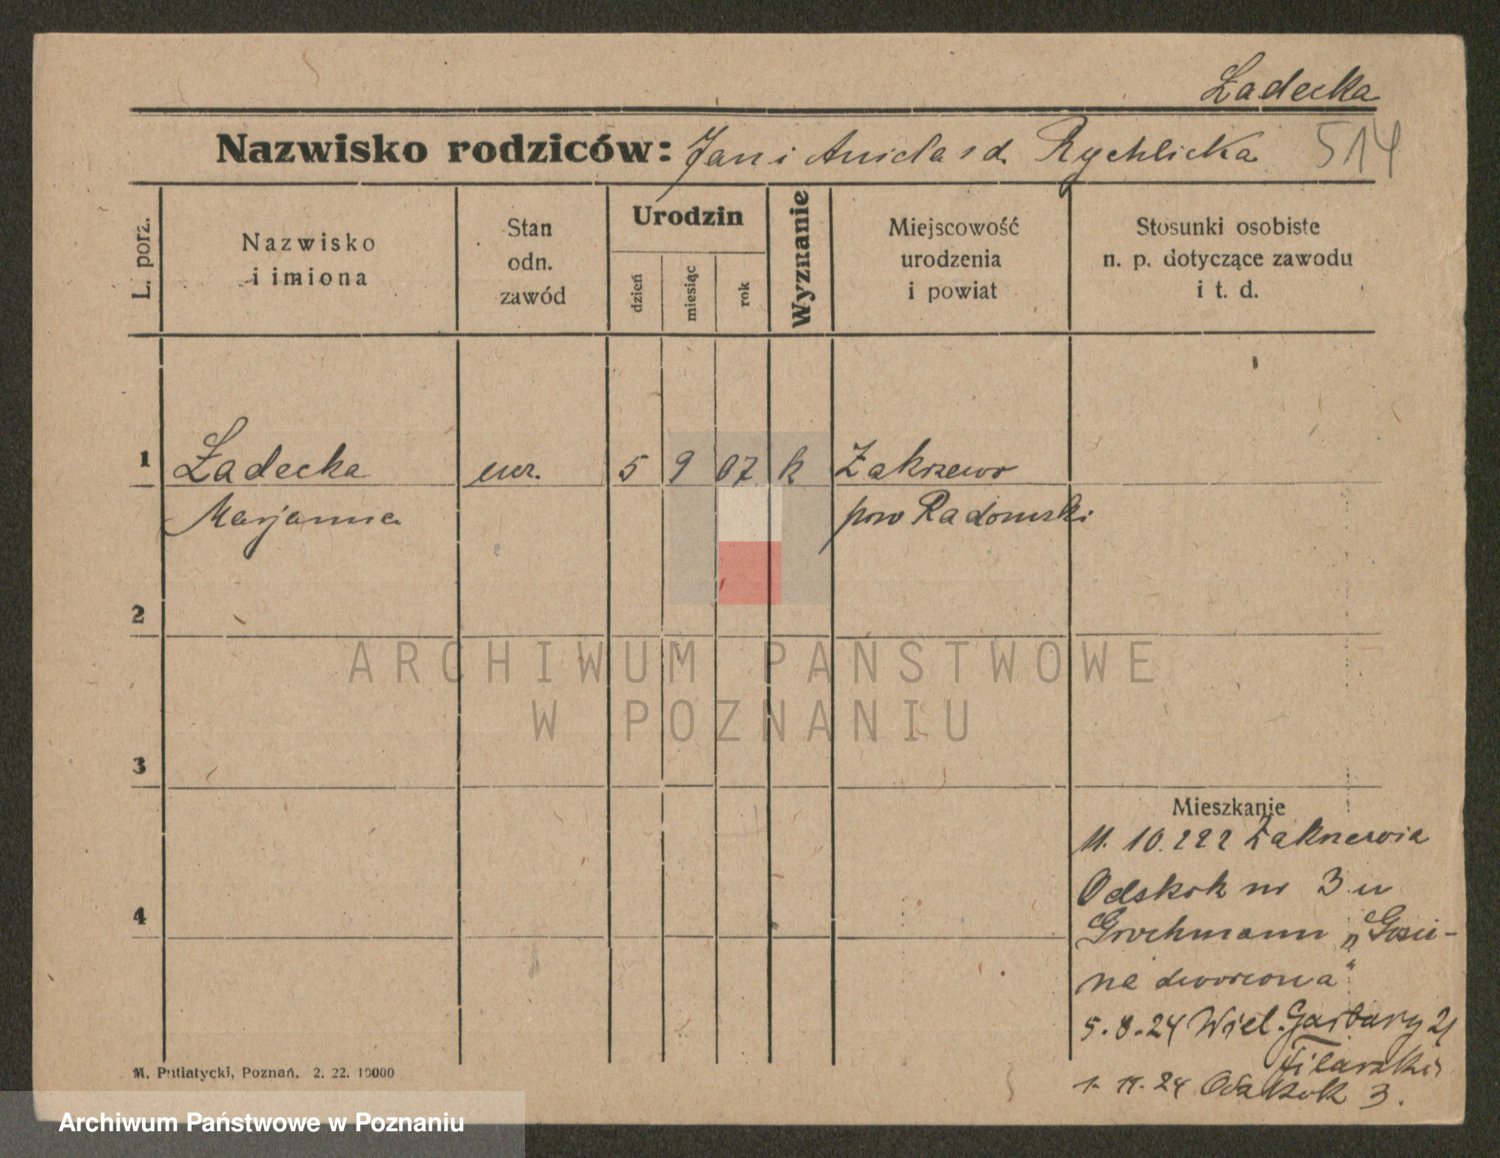 Ładecka
Nazwisko rodziców: Jan i Aniela z d. Rychlicka 514
L. porz.
Nazwisko
i imiona
Stan
odn.
zawód
Urodzin
dzień
miesiąc
rok
Wyznanie
Miejscowość
urodzenia
i powiat
Stosunki osobiste
n. p. dotyczące zawodu
i t. d.
1 Ładecka 5 9 07 k Zakrzewo
Marjanna pow Radomski
2
ARCHIWUM PAŃSTWOWE
W POZNANIU
3
Mieszkanie
11. 10. 222 Zakrzewia
Odskok nr 3 u
4
Grochmann
dworcowa"
5. 8. 24 Wiel. Garbary 21
1. 11. 24 Odskok 3.
M. Putiatycki, Poznań. 2. 22. 10000
Archiwum Państwowe w Poznaniu